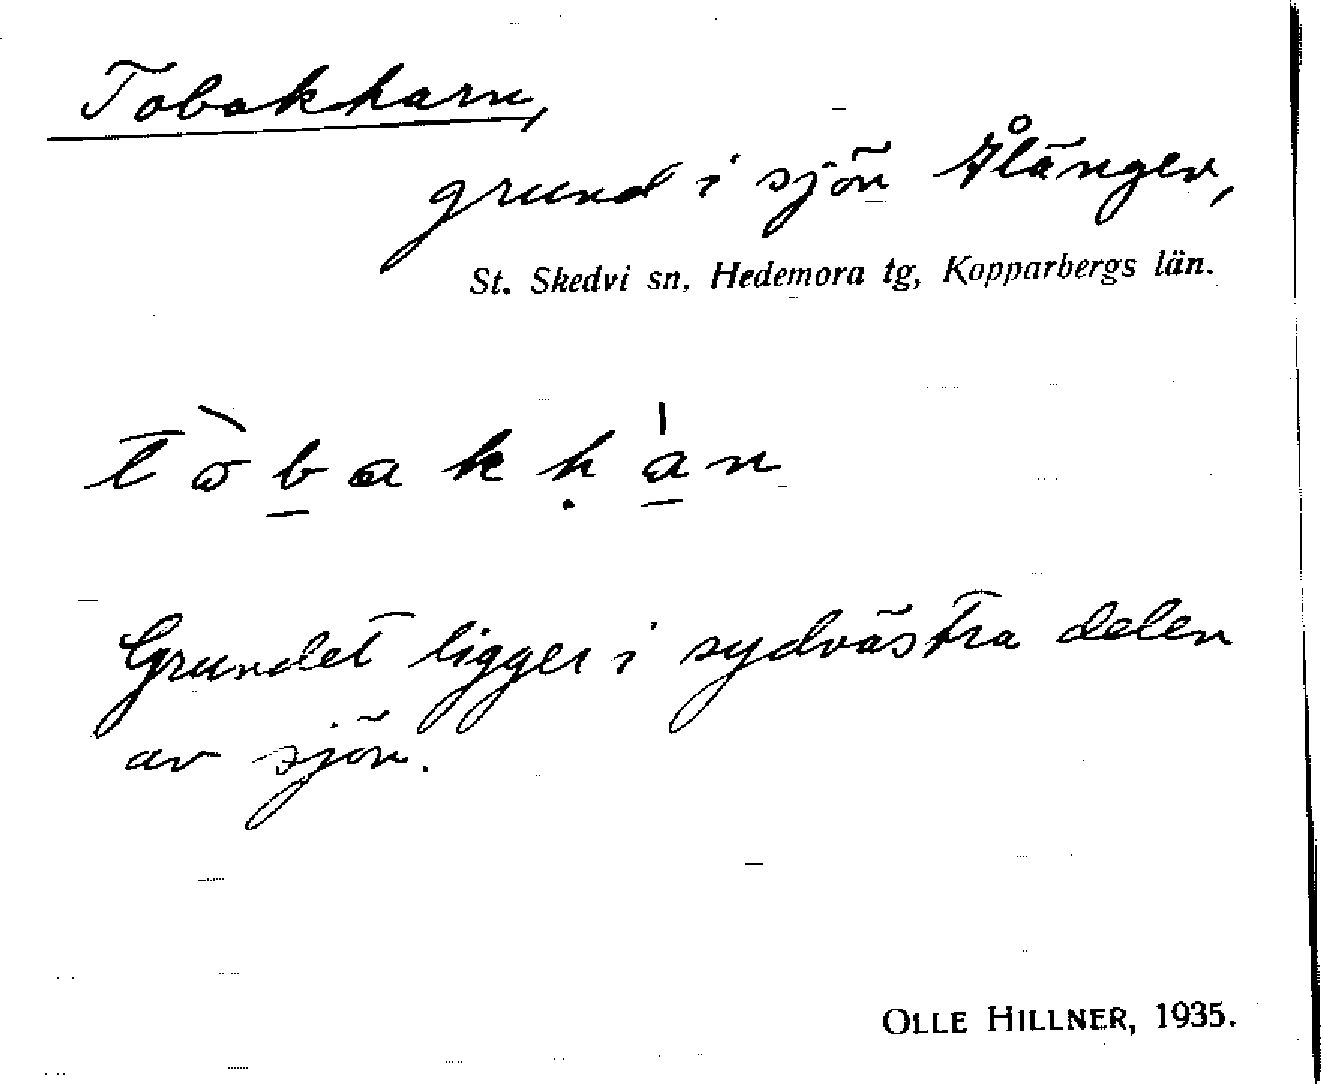 Tobakharn,
grund i sjön Ålängen,
St. Skedvi sn, Hedemora tg, Kopparbergs län.
Grundet ligger i sydvästra delen
av sjön.
OLLE HILLNER, 1935.